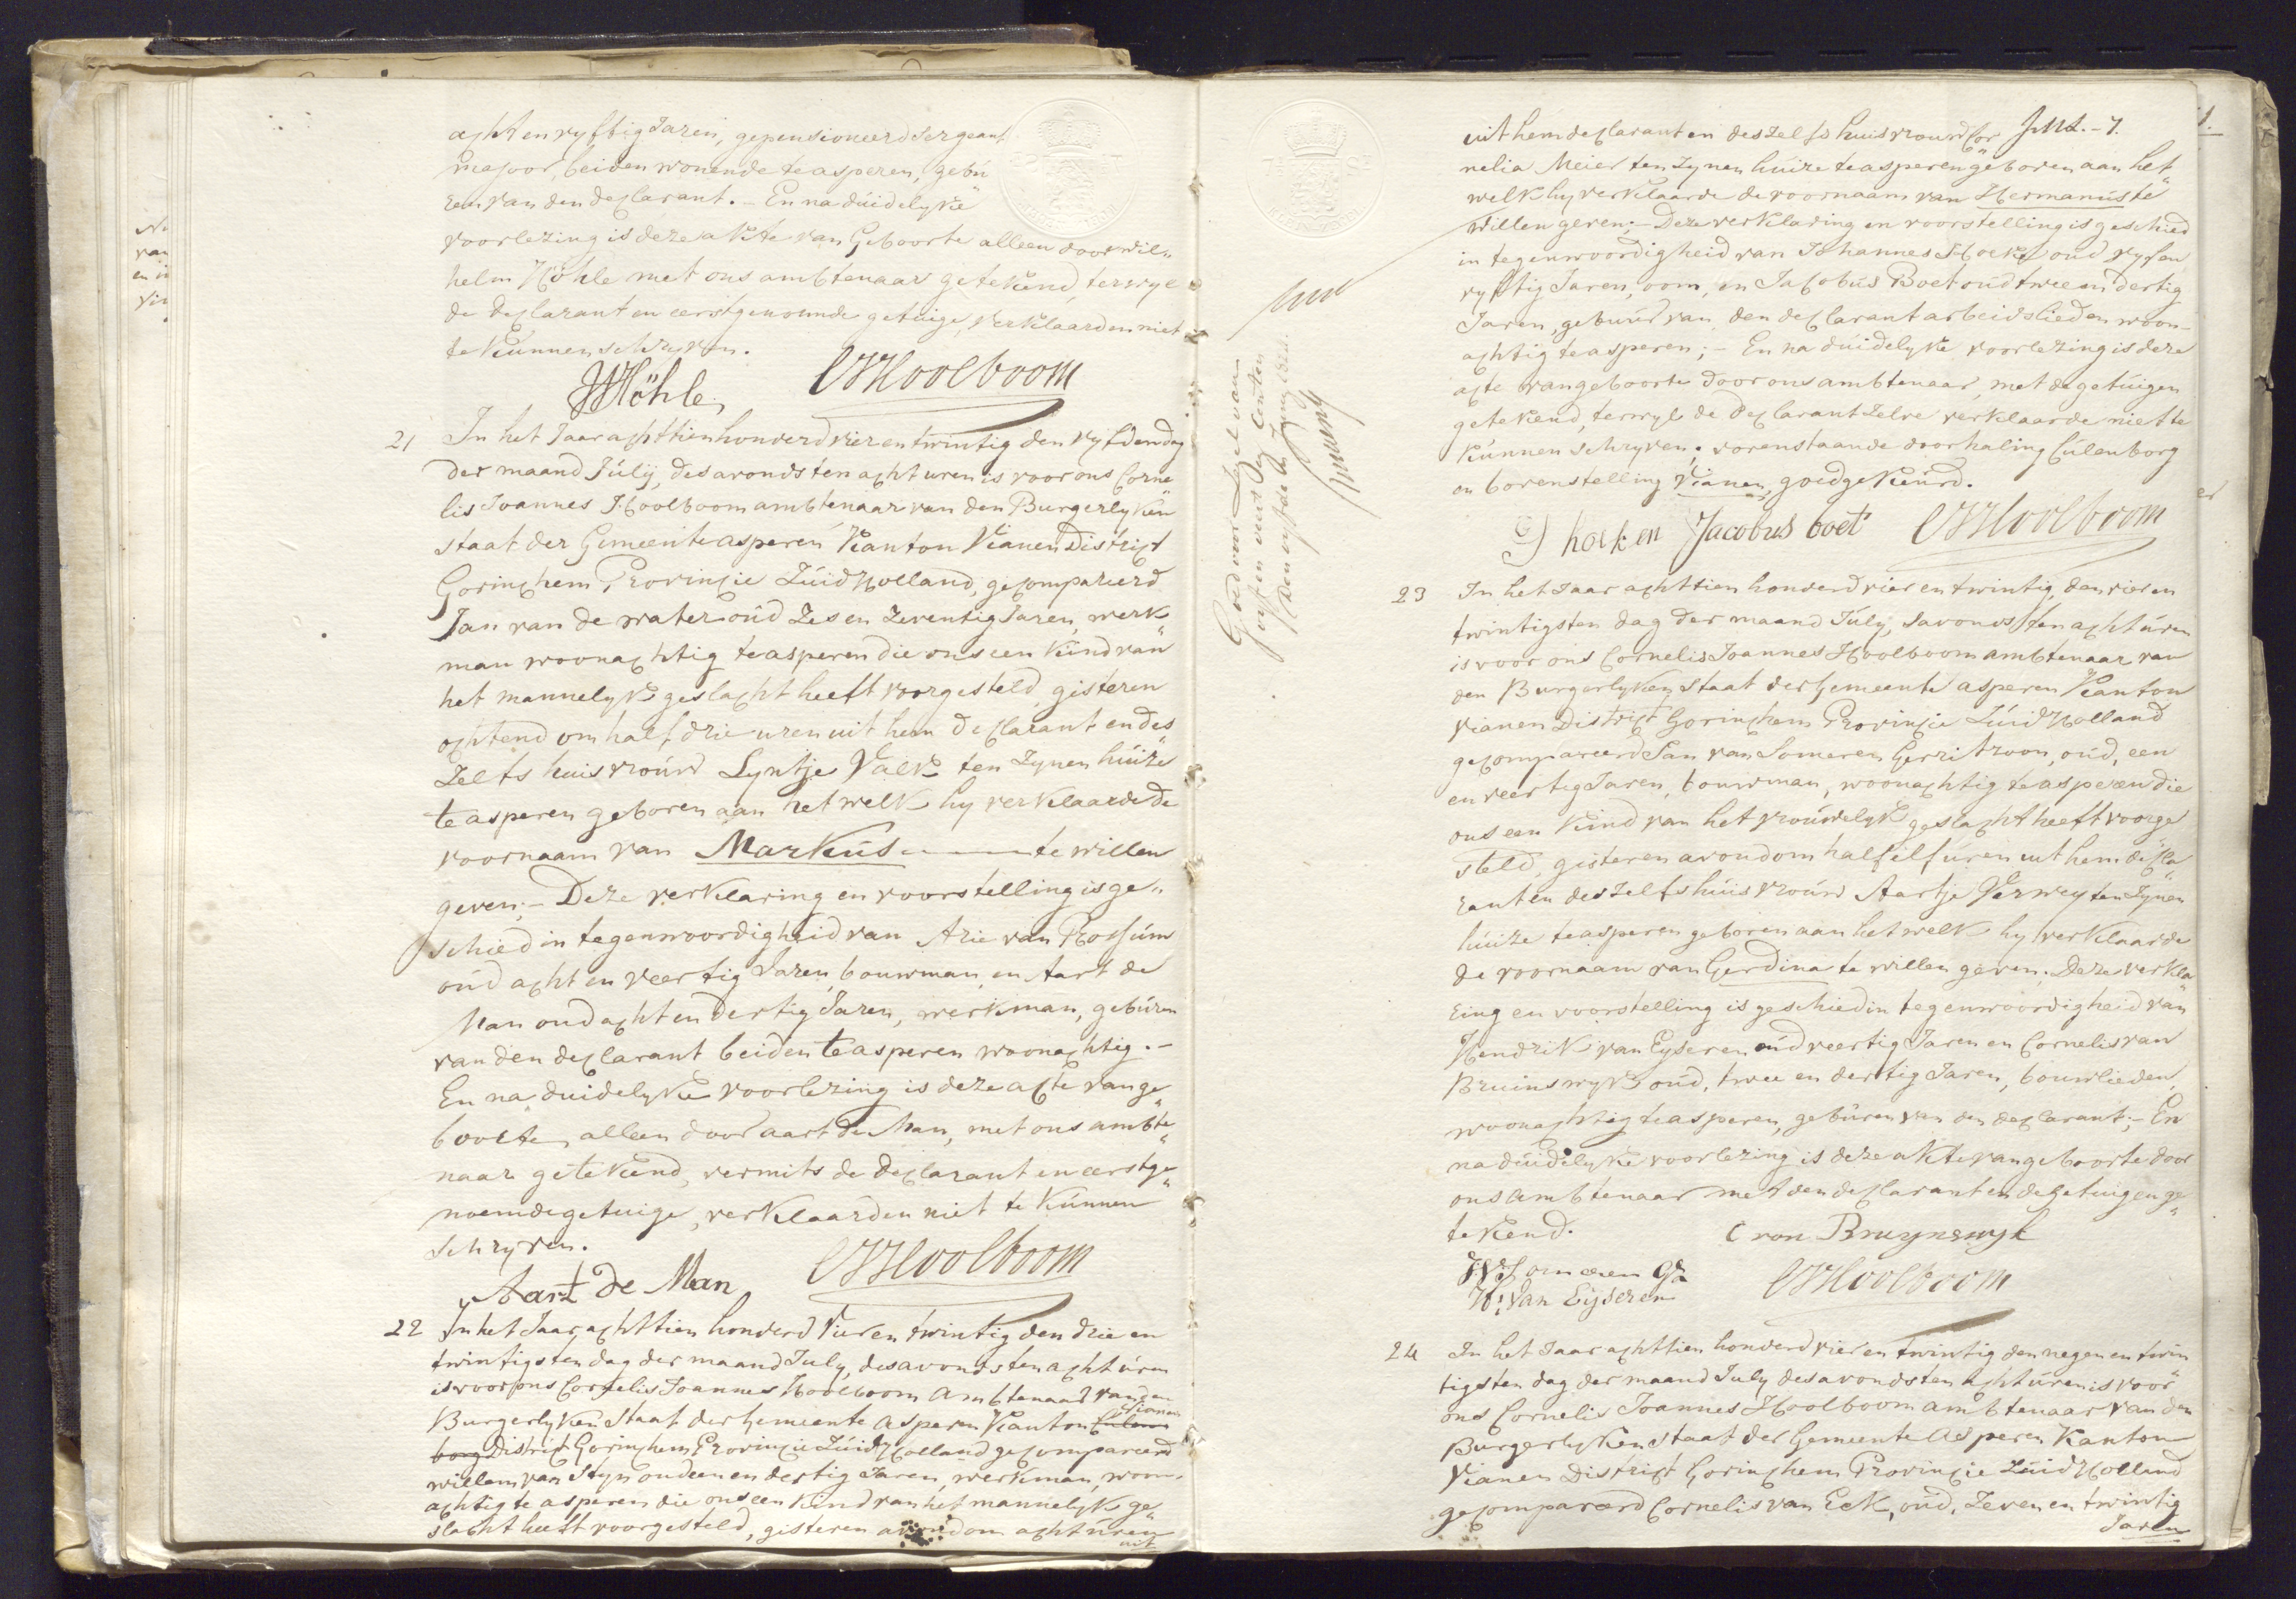 acht en vyftig Jaren, gepensioneerd Sergeant
Majoor, beiden wonende te asperen, gebu
ren van den declarant. - En na duidelyke
voorlezing is deze akte van Geboorte alleen door Wil„
helm Höhle met ons ambtenaar getekend, terwyl
de declarant en eerstgenoemde getuige, verklaarden niet
te kunnen schryven.
WHöhle CJHoolboom
21 In het Jaar achttienhonderd vier en twintig den vyfden dag
der maand Júlij, des avonds ten acht uren is voor ons Corne
lis Joannes Hoolboom ambtenaar van den Burgerlyken
staat der Gemeente asperen Kanton Vianen District
Gorinchem, Provincie Zúid Holland, gecompareerd
Jan van de water oúd Zes en Zeventig Jaren, werk
man woonachtig te asperen die ons een kind van
het mannelyk geslacht heeft voorgesteld, gisteren
ochtend om half drie uren uit hem declarant en des
Zelfs huisvroúw Lyntje Valk ten Zynen húize
te asperen geboren aan het welk hy verklaarde de
voornaam van Markús te willen
geven; - Deze verklaring en voorstelling is ge„
schied in tegenwoordigheid van Arie van Rossúm
oúd acht en veertig Jaren, bouwman, en Aart de
Man oud acht en dertig Jaren, werkman, gebúren
van den declarant beiden te asperen woonachtig. -
En na duidelyke voorlezing is deze acte van ge„
boorte, alleen door aart de Man, met ons ambte„
naar getekend, vermits de declarant en eerstge„
noemde getuige, verklaarden niet te kúnnen
schryven.
Aart de Man CJHoolboom
22 In het Jaar achttien honderd Vier en twintig den drie en
twintigsten dag der maand July, des avonds ten acht úren
is voor ons Cornelis Joannes Hoolboom Ambtenaar van den
Vianen
Burgerlyken Staat der Gemeente Asperen Kanton Culen
borg District Gorinchem Provincie Zúid Holland gecompareerd
willem van Styn oud een en dertig Jaren, werkman, woon„
achtig te asperen die ons een kind van het mannelyk ge„
slacht heeft voorgesteld, gisteren avond om acht úren
uit
Goed voor Zegel van
vyf en veertig Centen
Den vyfde
uit hem declarant en deszelfs huisvrouw Cor
nelia Meier ten Zynen húize te asperen geboren aan het„
welk hy verklaarde de voornaam van Hermanús te
willen geven; - Deze verklaring en voorstelling is geschied
in tegenwoordigheid van Johannes Hoek oud vyf en
vyftig Jaren, oom, en Jacobús Boet oúd twee en dertig
Jaren, gebuúr van den declarant arbeidslieden woon-
achtig te asperen; - En na dúidelyke voorlezing is deze
acte van geboorte door ons ambtenaar, met de getúigen
getekend, terwyl de declarant zelve verklaarde niet te
kúnnen schryven; vorenstaande doorhaling Cúlenborg
en bovenstelling Vianen, goedgekeúrd.
J hoek en Jacobus boet CJHoolboom
23 In het Jaar achttien honderd vier en twintig, den vier en
twintigsten dag der maand Júlij, savonds ten acht úren
is voor ons Cornelis Joannes Hoolboom ambtenaar van
den Burgerlyken Staat der Gemeente asperen Kanton
Vianen District Gorinchem Provincie Zúid Holland
gecompareerd Jan van Someren Gerritzoon, oúd, een
en veertig Jaren, bouwman, woonachtig te asperen die
ons een kind van het vroúwelyk geslacht heeft voorge
steld, gisteren avond om half elf úren uit hem decla„
rant en deszelfs húisvroúw Aartje Verwey ten Zynen
húize te asperen geboren aan het welk hy verklaarde
de voornaam van Gerdina te willen geven. Deze verkla
ring en voorstelling is geschied in tegenwoordigheid van
Hendrik van Eyseren oúd veertig Jaren en Cornelis van
Bruinswyk oúd, twee en dertig Jaren, bouwlieden,
woonachtig te asperen, gebúren van den declarant; - En
na dúidelyke voorlezing is deze akte van geboorte door
ons ambtenaar met den declarant en de getuigen ge„
tekend. C van Bruynswyk
JvSomeren Gz CJHoolboom
H: van Eijseren
24 In het Jaar achttien honderd vier en twintig den negen en twin
tigsten dag der maand July des avonds ten acht úren is voor
ons Cornelis Joannes Hoolboom ambtenaar van den
Burgerlyken staat der Gemeente Asperen Kanton
Vianen District Gorinchem Provincie Zúid Holland
gecompareerd Cornelis van Eck, oúd, Zeven en twintig
Jaren